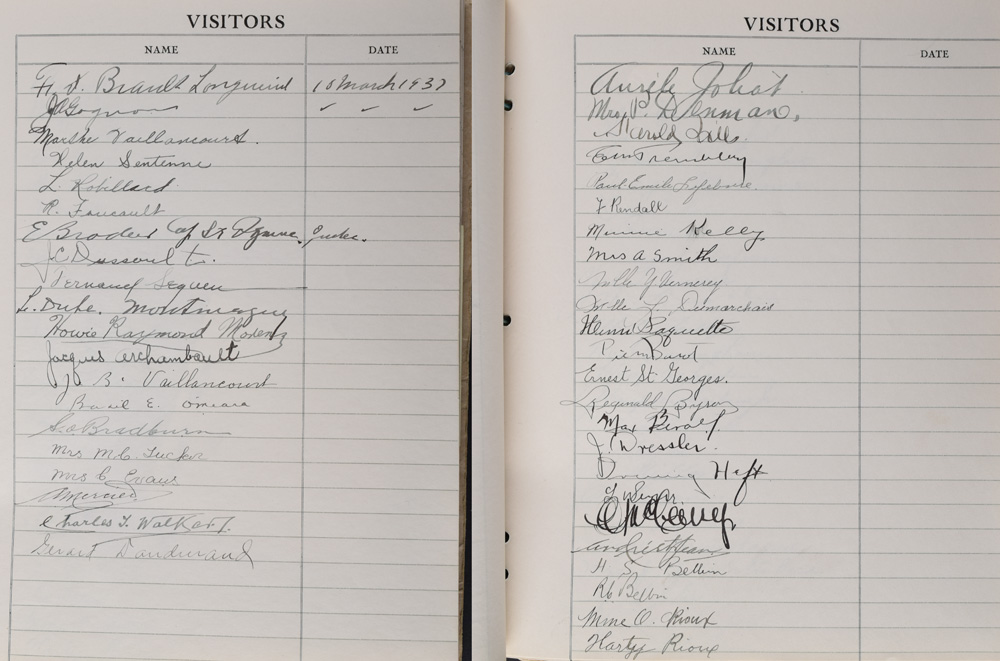 VISITORS
NAME DATE
Brault Longueuil 10 March 1937
J A Gagnon
Marthe Vaillancourt.
Helen Sentenne
L. Robillard
R. Foucault
E Brodeur Cap St Ignace. Quebec.
J C Dussault.
Fernand Seguin
L. Dube. Montmagny
Howie Raymond Morenz
Jacques Archambault
J B. Vaillancourt
Basil E. O'meara
Bradburn
Mrs M. C. Tucker
Mrs C Evans
A Mercier
Charles T. Walker
Gerard Dandurand
VISITORS
NAME DATE
Aurèle Joliat
Mrs. P. Denman,
Harold
Tom Trembley
Paul-Emile Lefebvre.
F Rendall
Minnie Kelly
Mrs A Smith
Mlle Y
Mlle L. Dumarchais
Henri Paquette
Ernest St Georges.
Reginald Byron
Max
J. Dressler.
Heft
H S Bettin
R C Bettin
Mme O. Rioux
Harty Rioux